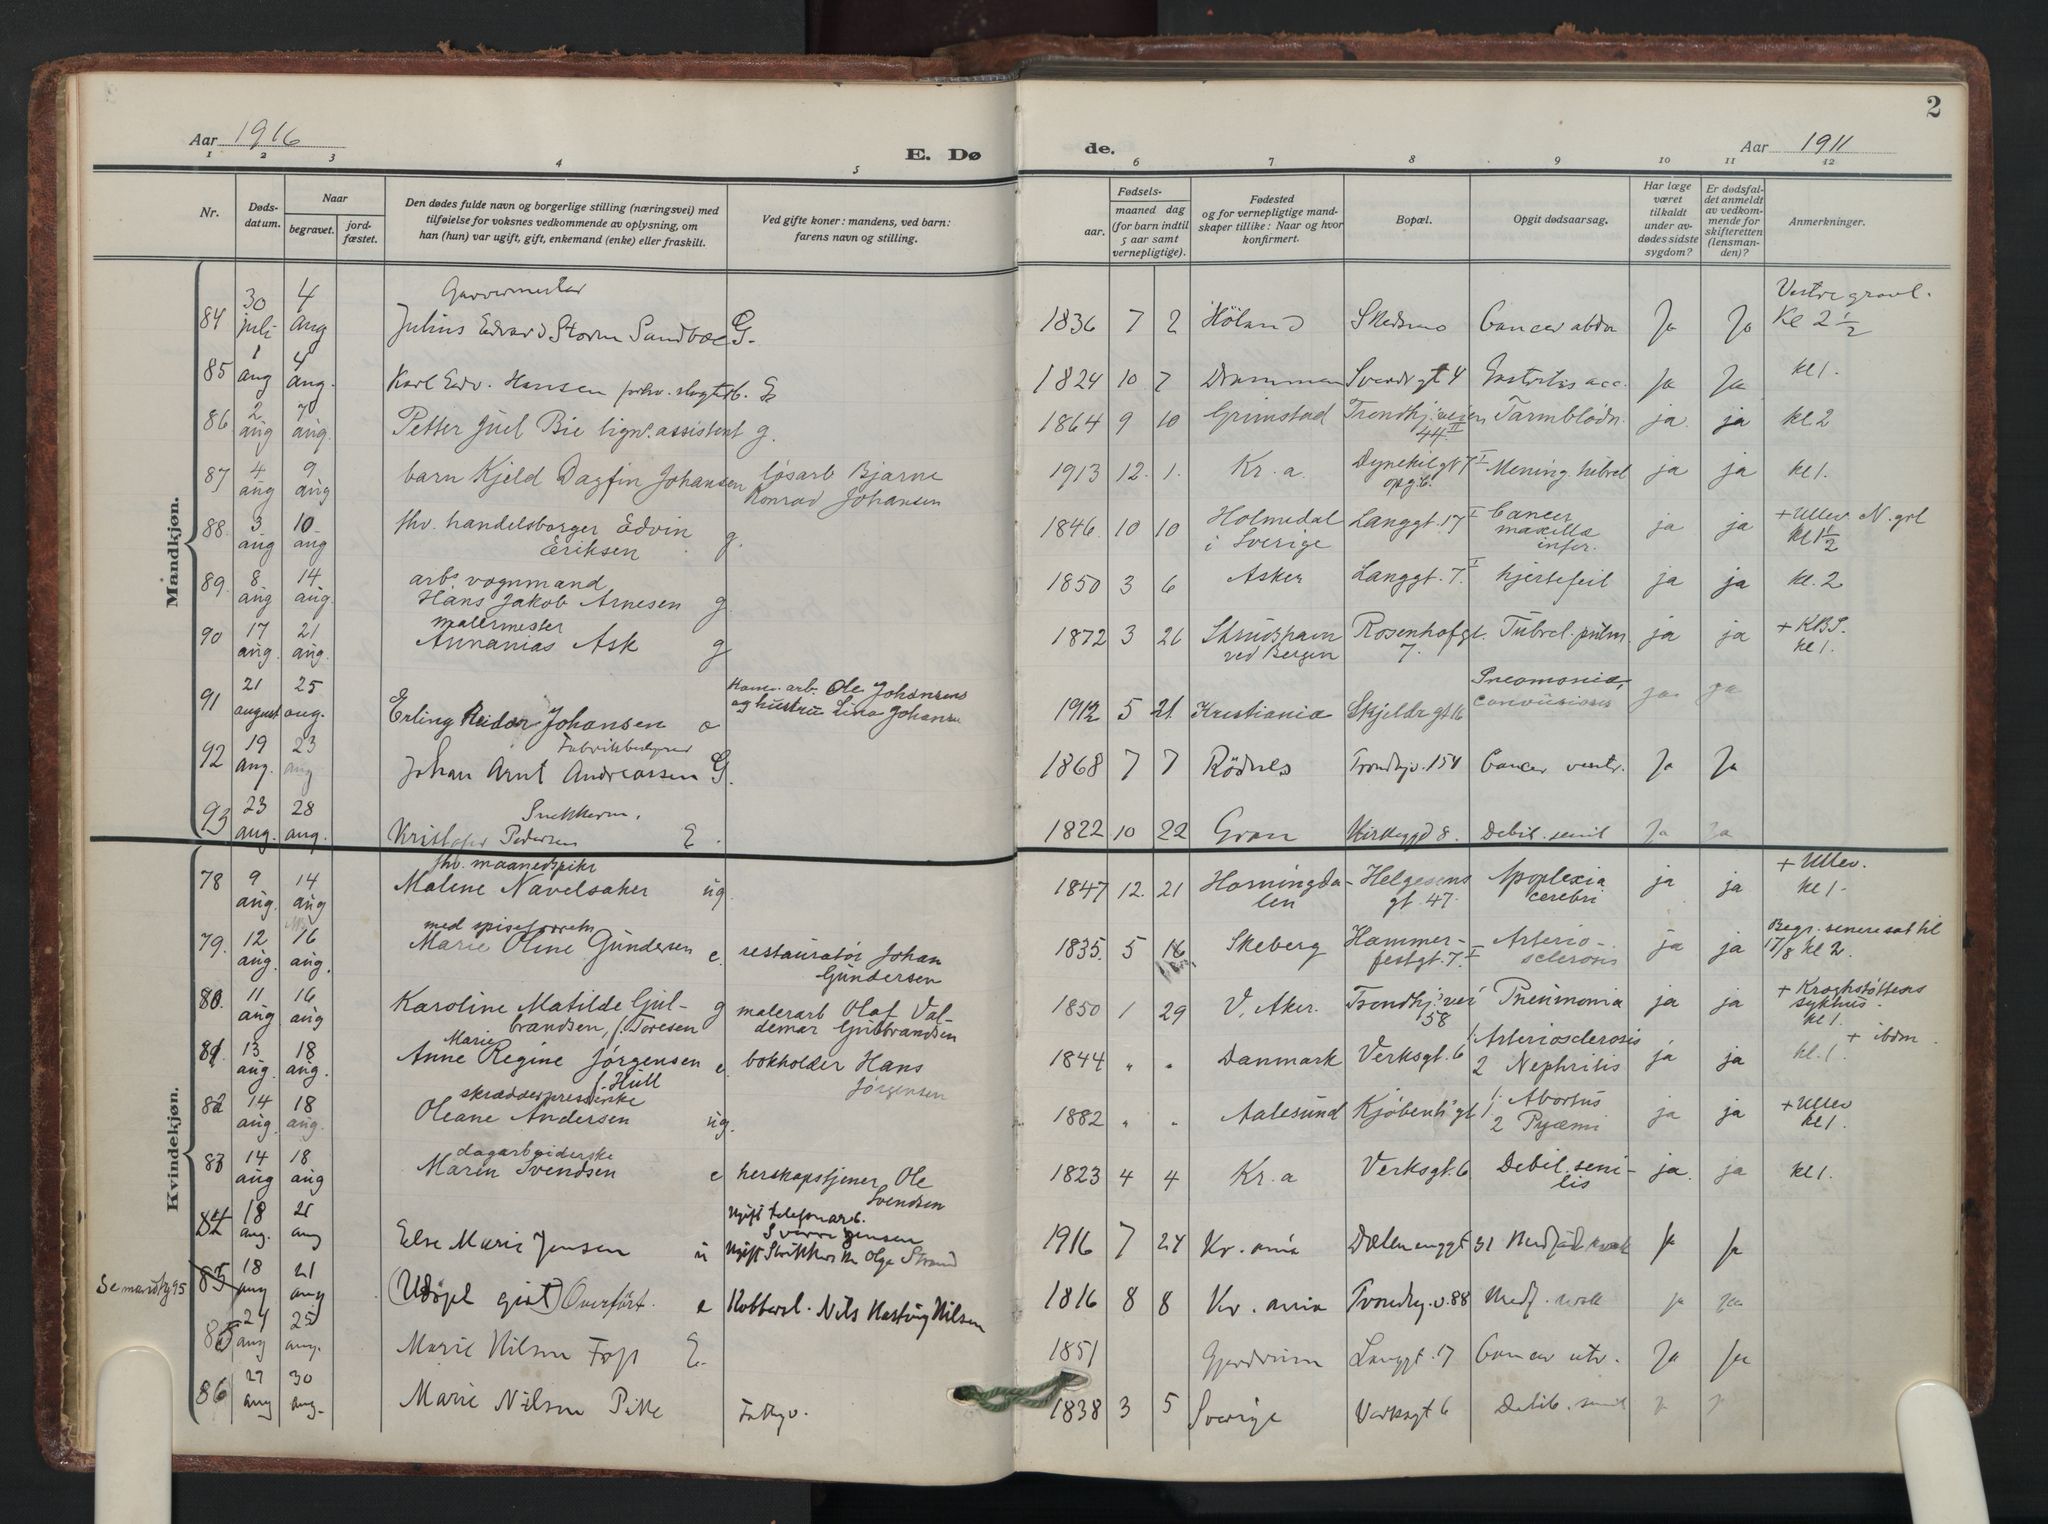 2
Aar 1916
E. Dø
de.
Aar 1911
1 2 3 4 5 6 7 8 9 10 11 12
Nr.
Døds-
datum.
Naar
begravet.
jord-
fæstet.
Den dødes fulde navn og borgerlige stilling (næringsvei) med
tilføielse for voksnes vedkommende av oplysning, om
han (hun) var ugift, gift, enkemand (enke) eller fraskilt.
Ved gifte koner: mandens, ved barn:
farens navn og stilling.
Fødsels-
aar.
maaned dag
(for barn indtil
5 aar samt
vernepligtige).
Fødested
og for vernepligtige mand-
skaper tillike: Naar og hvor
konfirmert.
Bopæl.
Opgit dødsaarsag.
Har læge
været
tilkaldt
under av-
dødes sidste
sygdom?
Er dødsfal-
det anmeldt
av vedkom-
mende for
skifteretten
(lensman-
den)?
Anmerkninger.
Mandkjøn.
Garvermester Vestre gravl.
84 30 juli 4 aug Julius Edvard Storm Sandboe G. 1836 7 2 Høland Skedsmo Cancer abdo Ja Ja Kl 2 1/2
85 1 aug 4 aug. Karl Edv. Hansen E 1824 10 7 Drammen gt 4 Ja Ja kl 1.
86 2 aug 7 aug. Petter Juel Bie lign. assistent g. 1864 9 10 Grimstad Trondhj.veien 44 II Tarmblødn. ja ja kl. 2
87 4 aug 9 aug barn Kjeld Dagfin Johansen løsarb Bjarne
Konrad Johansen 1913 12. 1. Kr.a Dynekilgt 7 I opg. 6. Mening. tubrcl ja ja kl 1.
88. 3 aug 10 aug fhv. handelsborger Edvin
Eriksen g. 1846 10 10 Holmedal
i Sverige Langgt. 17 I Cancer
maxilla
infer. ja ja + Ullev. N. grl
kl 1 1/2
89. 8 aug 14 aug. arbs vognmand
Hans Jakob Arnesen g. 1850 3 6 Asker Langgt. 7. I hjertefeil ja ja kl. 2
90 17 aug. 21 aug. malermester
Annanias Ask g 1872 3 26
ved Bergen Rosenhofgt.
7. Tubrcl. pulm. ja ja + KBS.
kl 1.
91 21 august 25 aug. Erling Reidar Johansen arb. Ole Johansens
og hustru Lina Johansen 1912 5 21 Kristiania Skjeldr gt 16 Pneomonia,
ja ja
Fabrikbestyrer
92 19 aug. 23 aug Johan Arnt Andreassen G. 1868 7 7 Rødnes Trondhjv. 154 Cancer ventr. Ja Ja
Snekkerm.
93 23 aug. 28 aug. Kristofer Pedersen E. 1822 10 22 Gran Kirkeggd 8. Debil. senil Ja Ja
Kvindekjøn.
78 9 aug. 14 aug fhv. maanedspike
Malene Navelsaker ug. 1847 12. 21 Horningda-
len Helgesens
gt. 47. Apoplexia
cerebri ja ja + Ullev.
kl 1.
79. 12 aug. 16 aug. med spiseforretn
Marie Oline Gundersen e. restauratør Johan
Gundersen 1835. 5 16 Skeberg Hammer-
festgt. 7. I Arterio-
sclerosis ja ja Begr. senere sat til
17/8 kl 2.
80. 11 aug 16 aug Karoline Matilde Gul-
brandsen, f. Toresen g malerarb Olaf Val-
demar Gulbrandsen 1850 1 29 V. Aker. Trondhj.vei
58 Pneumonia ja ja + Kroghstøttens
sykhus.
kl 1.
81. 13 aug. 18 aug. Marie
Anne Regine Jørgensen
f. Hull e. bokholder Hans
Jørgensen 1844 " " Danmark Verksgt. 6 1 Arteriosclerosis
2 Nephritis ja ja + ibdm.
kl. 1.
82 14 aug. 18 aug. skrædderpresserske
Oleane Andersen ug. 1882 " " Aalesund Kjøbenh gt 1 1. Abortus
2 Pyæmi ja ja + Ullev
kl 1.
83 14 aug 18 aug dagarbeiderske
Maren Svendsen e herskapstjener Ole
Svendsen 1823 4 4 Kr.a Verksgt. 6 Debil. seni-
lis ja. ja kl 1.
84 18 aug. 21 aug Else Marie Jensen u Ugift telefonarb.
Sverre Jensen
Ugift Olga Strand 1916 7 24 Kr.ania Dælenenggt 31 Medfød svak ja ja
Se mandkj 95
85 18 aug 21 aug (Udøpt gut) Overført. e Kobbersl. Nils Hartvig Nilsen 1816 8 8 Kr.ania Trondhj.v. 88 Medf. svak ja ja
85 24 aug 25 aug. Marie Nilsen E. 1851 Gjerdrum Langgt. 17 Cancer utr. Ja ja
86 27 aug 30 aug. Marie Nilsen Fattigv. 1838 3 5 Sverige Verksgt 6 Debil. senil ja ja